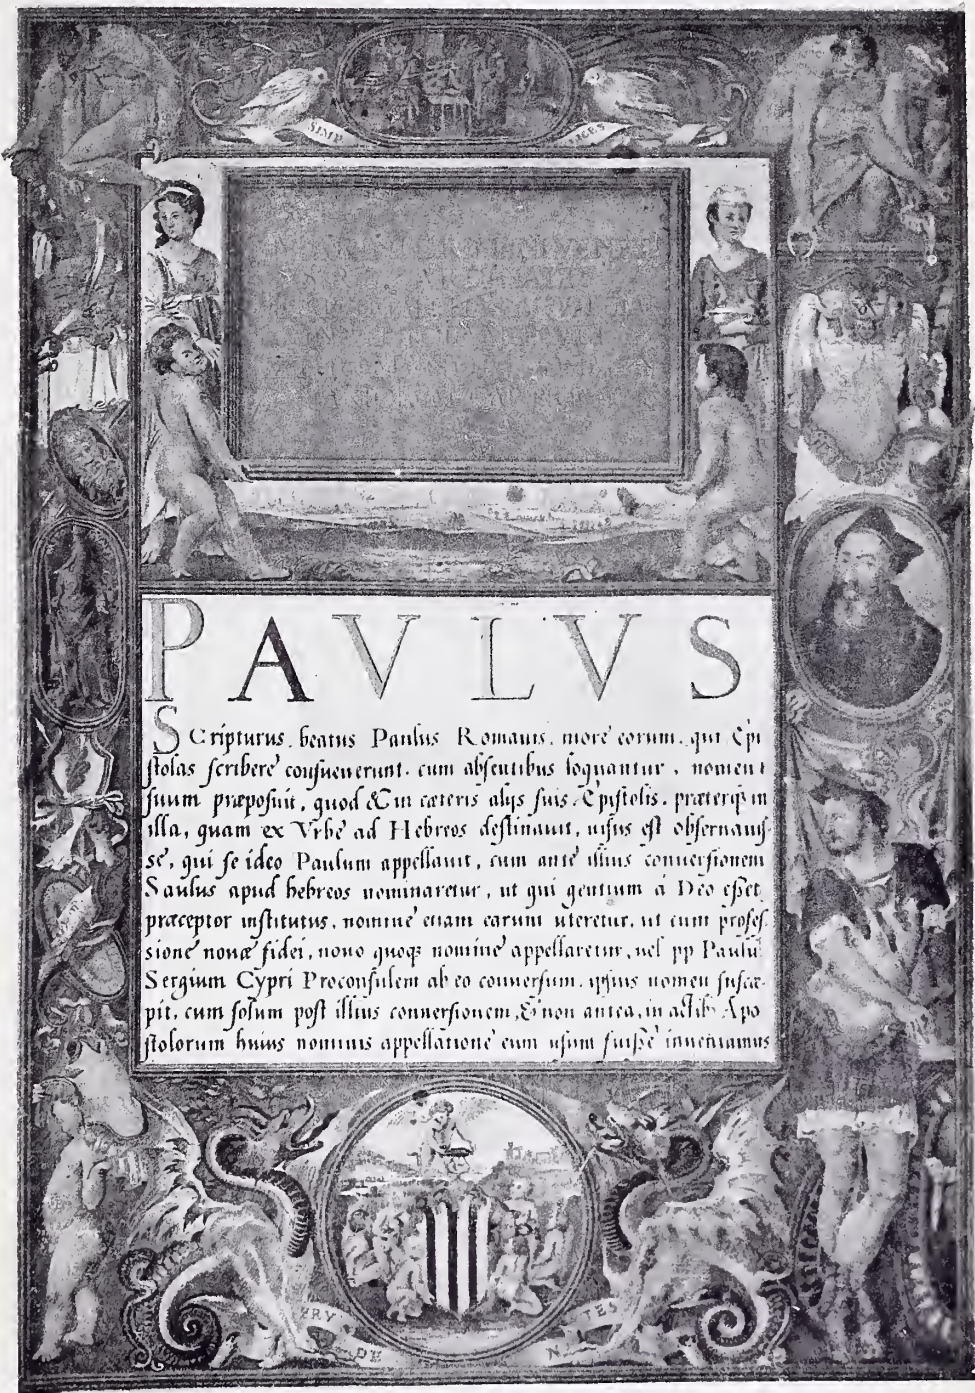 SIMP
CES
PAVLVS
SCripturus beatus Paulus Romanis, more eorum, qui Epi
stolas scribere consueuerunt, cum absentibus loquantur, nomen
suum præposuit, quod & in cæteris alijs suis Epistolis, præterq; in
illa, quam ex Vrbe ad Hebreos destinauit, uisus est obseruauis-
se, qui se ideo Paulum appellauit, cum ante illius conuersionem
Saulus apud hebreos nominaretur, ut qui gentium à Deo esset
præceptor institutus, nomine etiam earum uteretur, ut cum profes-
sione nouæ fidei, nouo quoq; nomine appellaretur, uel pp Paulū
Sergium Cypri Proconsulem ab eo conuersum, ipsius nomen susce-
pit, cum solum post illius conuersionem, & non antea, in actibꝰ Apo
stolorum huius nominis appellatione eum usum fuisse inueniamus
RV
DE
N
TES